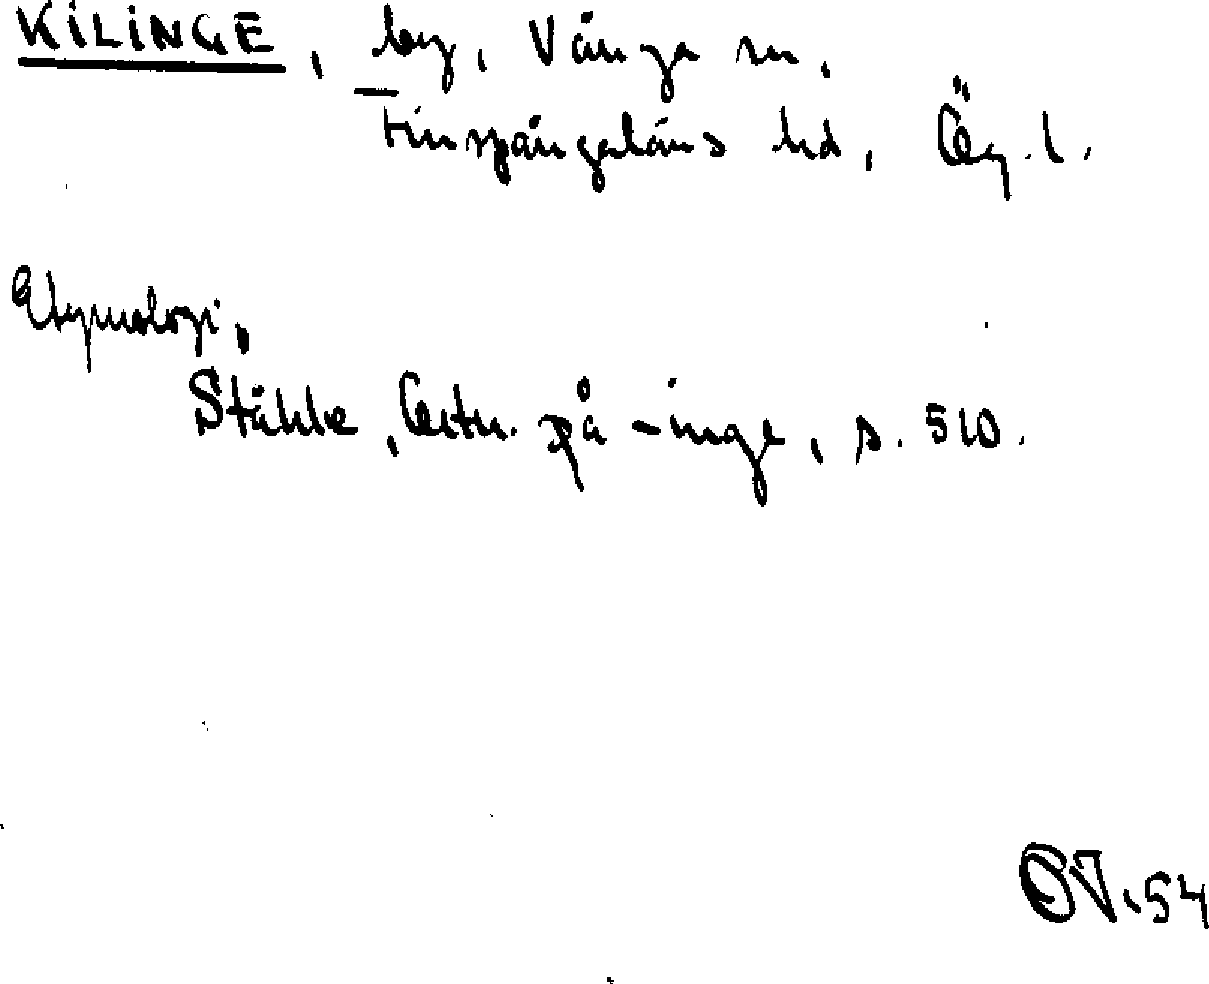 KILINGE, by, Vånga sn,
Finspångaläns hd, Ög. l.
Etymologi,
Ståhle, Ortn. på -inge, s. 510.
OV.54